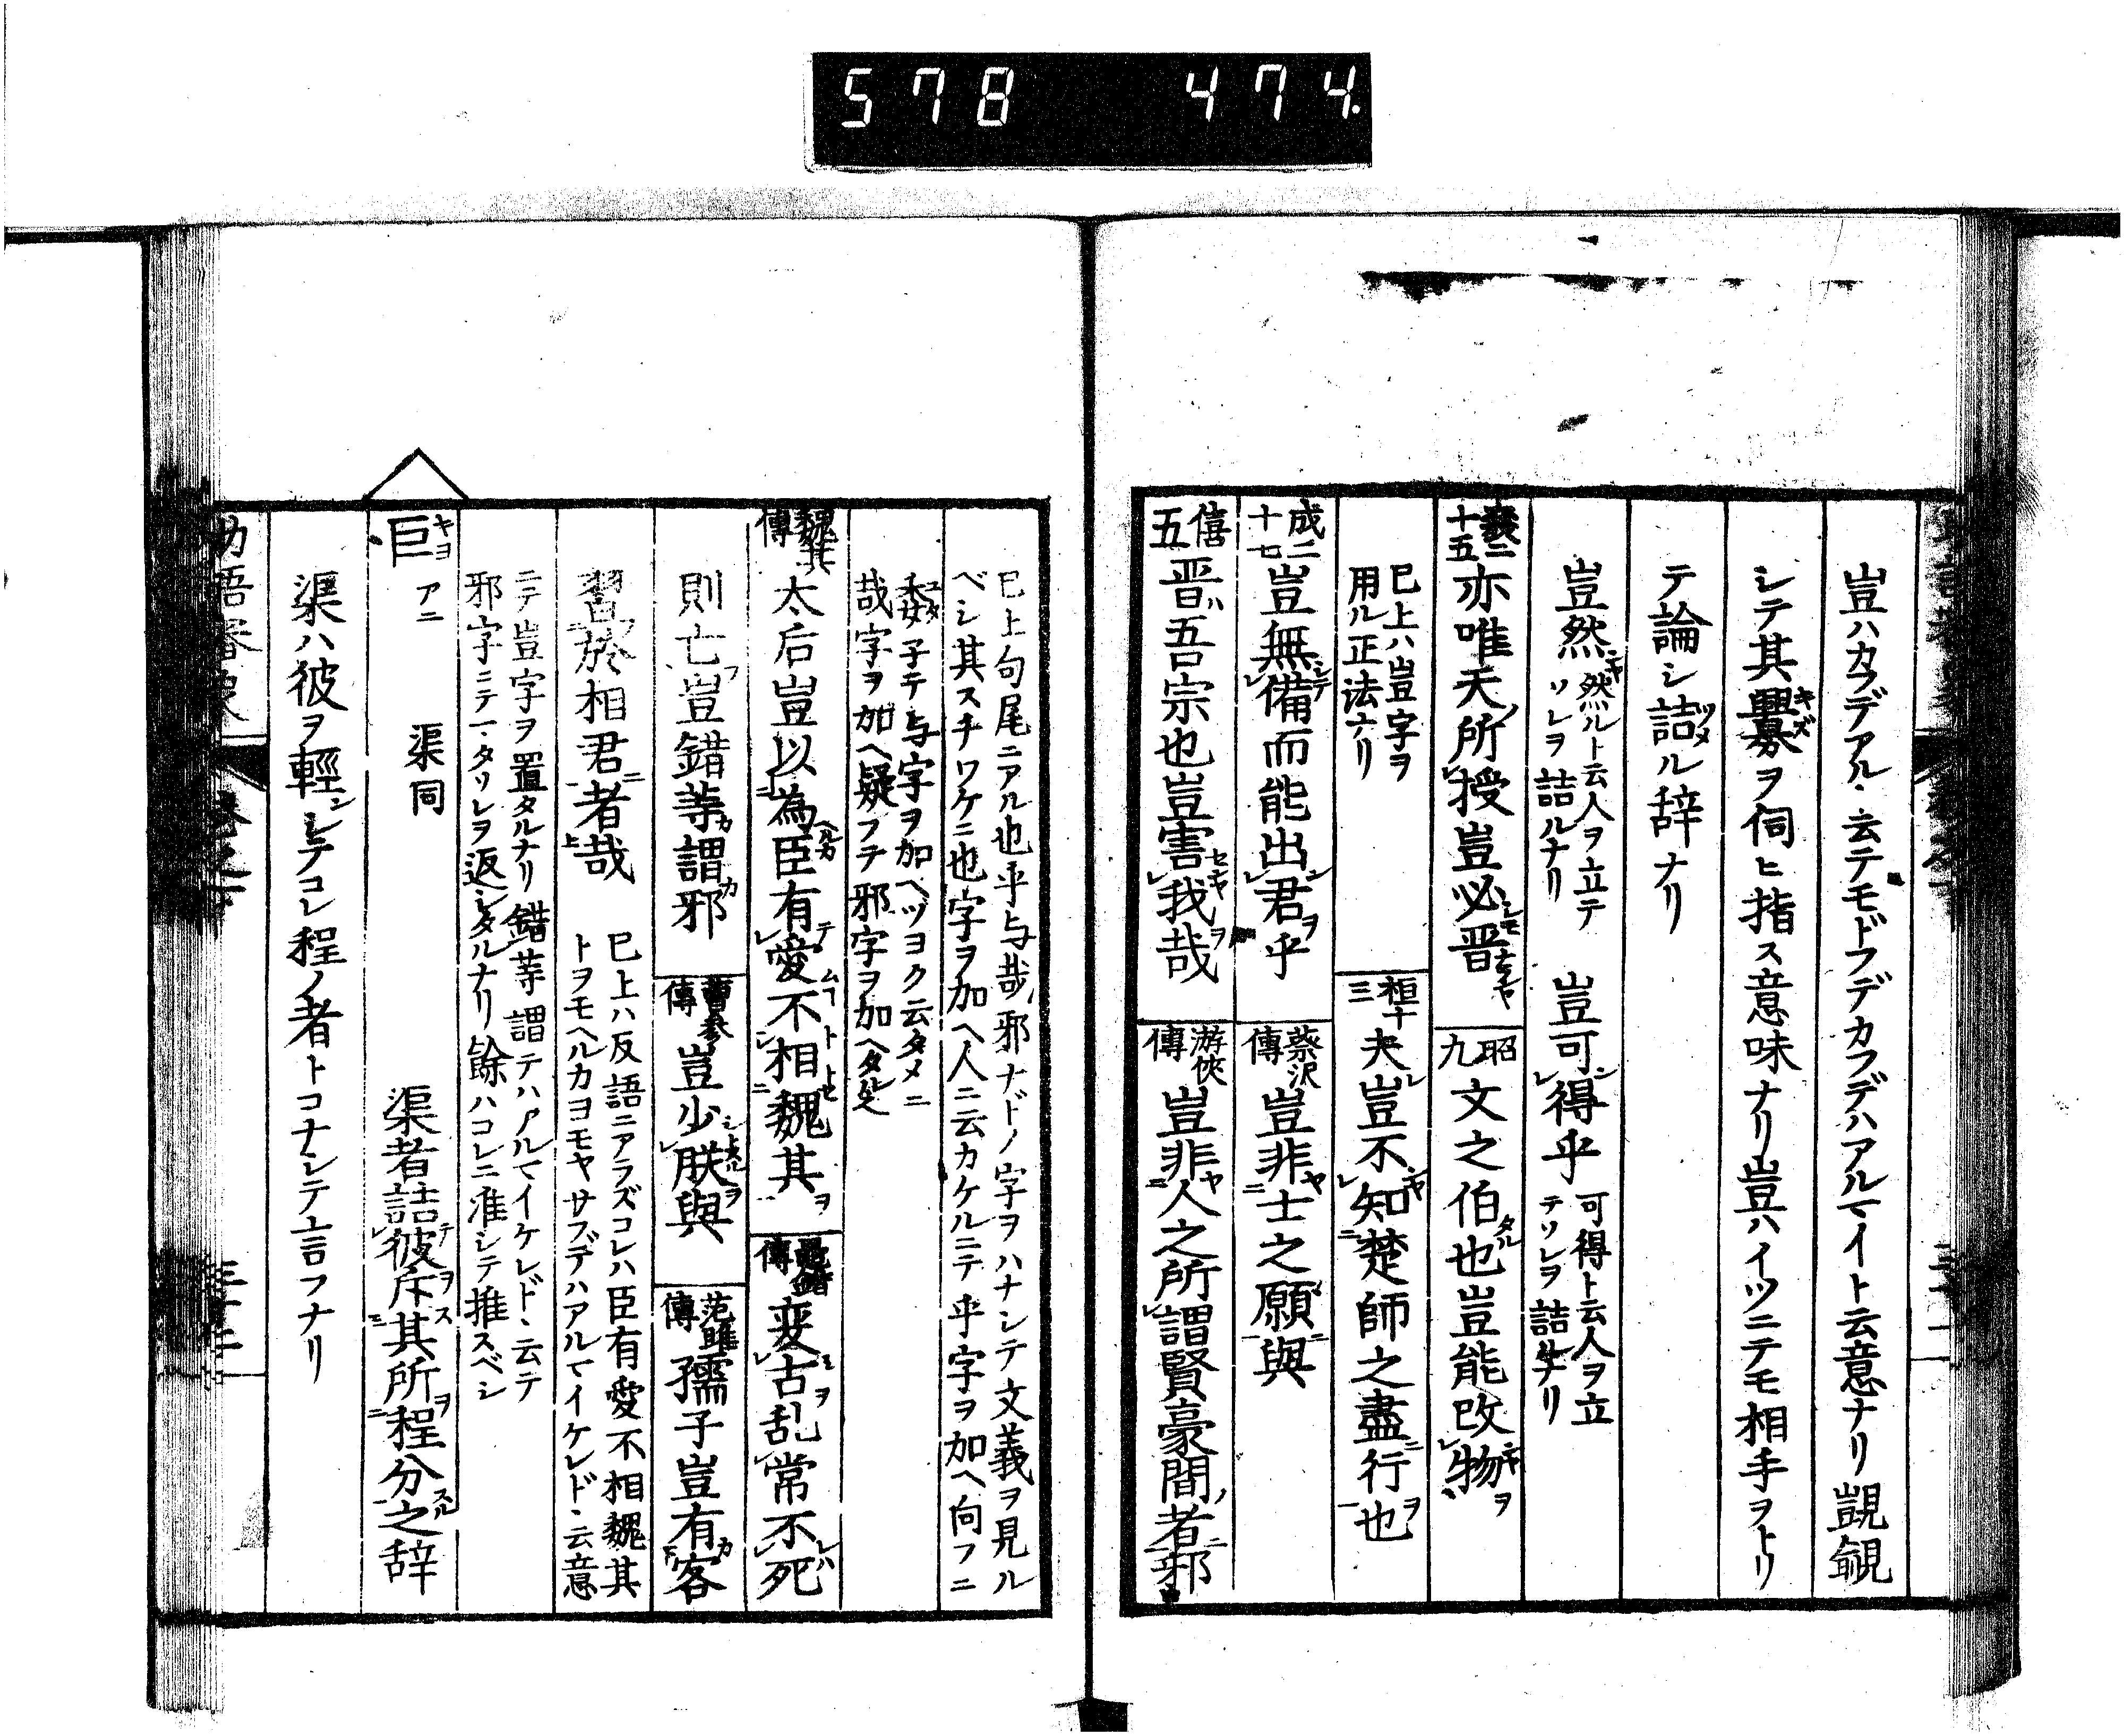 578 474.
豈ハカフデアル、云テモドフデカフデハアルマイト云意ナリ覬覦
シテ其釁ヲ伺ヒ指ス意味ナリ豈ハイツニテモ相手ヲトリ
テ論シ詰ル辞ナリ
豈然 然ルト云人ヲ立テソレヲ詰ルナリ 豈可得乎 可得ト云人ヲ立テソレヲ詰ルナリ
襄二十五 亦唯天所授豈必晋 昭九 文之伯也豈能改物
已上ハ豈字ヲ用ル正法ナリ 桓十三 夫豈不知楚師之盡行也
成二十七 豈無備而能出君乎 蔡沢傳 豈非士之願與
僖五 晋吾宗也豈害我哉 游俠傳 豈非人之所謂賢豪間者邪
已上句尾ニアル也乎与哉邪ナドノ字ヲハナシテ文義ヲ見ル
ベシ其スチワケニ也字ヲ加ヘ人ニ云カケルニテ乎字ヲ加ヘ向フニ
委子テ与字ヲ加ヘヅヨク云タメニ
哉字ヲ加ヘ疑フテ邪字ヲ加ヘタル
魏其傳 太后豈以為臣有愛不相魏其 鼂錯傳 変古乱常不死
則亡豈錯等謂邪 曹參傳 豈少朕與 范雎傳 孺子豈有客
習於相君者哉 已上ハ反語ニアラズコレハ臣有愛不相魏其
トヲモヘルカヨモヤサフデハアルマイケレド、云意
ニテ豈字ヲ置タルナリ錯等謂テハアルマイケレド、云テ
邪字ニテ一タソレヲ返シタルナリ餘ハコレニ准シテ推スベシ
巨 キヨ アニ 渠同 渠者詰彼斥其所程分之辞
渠ハ彼ヲ輕シテコレ程ノ者トコナシテ言フナリ